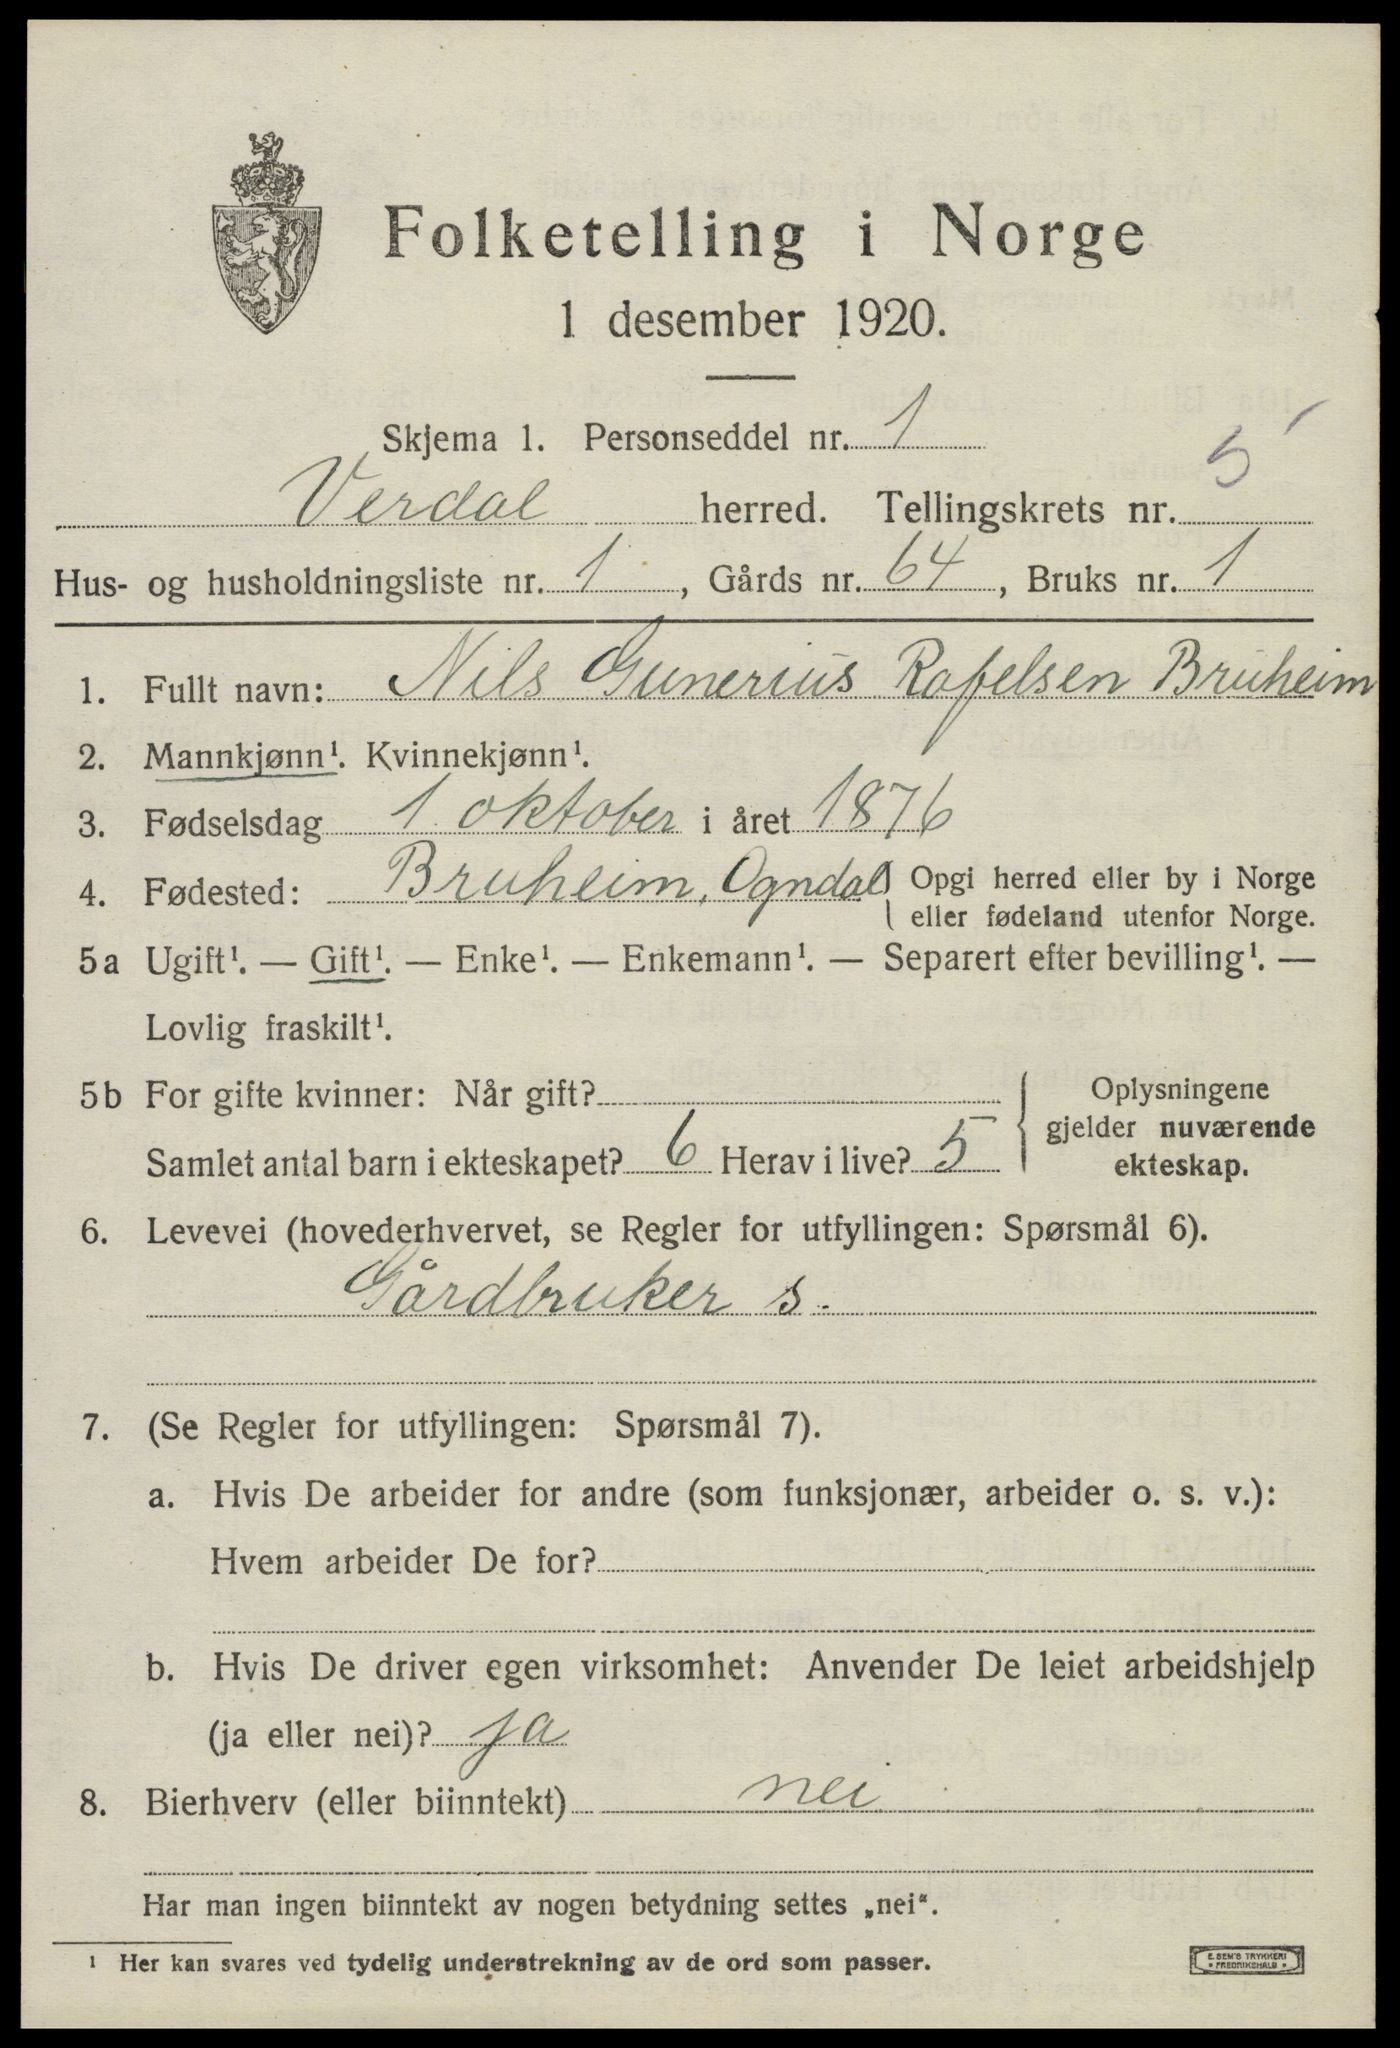 Folketelling i Norge
1 desember 1920.
Skjema 1. Personseddel nr. 1
Verdal herred. Tellingskrets nr. 5
Hus- og husholdningsliste nr. 1, Gårds nr. 64, Bruks nr. 1
1. Fullt navn: Nils Gunerius Rafelsen Bruheim
2. Mannkjønn¹. Kvinnekjønn¹.
3. Fødselsdag 1 oktober i året 1876
4. Fødested: Bruheim, Ogndal { Opgi herred eller by i Norge
eller fødeland utenfor Norge.
5a Ugift¹. — Gift¹. — Enke¹. — Enkemann¹. — Separert efter bevilling¹. —
Lovlig fraskilt¹.
5b For gifte kvinner: Når gift? { Oplysningene
gjelder nuværende
ekteskap.
Samlet antal barn i ekteskapet? 6 Herav i live? 5
6. Levevei (hovederhvervet, se Regler for utfyllingen: Spørsmål 6).
Gårdbruker s.
7. (Se Regler for utfyllingen: Spørsmål 7).
a. Hvis De arbeider for andre (som funksjonær, arbeider o. s. v.):
Hvem arbeider De for?
b. Hvis De driver egen virksomhet: Anvender De leiet arbeidshjelp
(ja eller nei)? ja
8. Bierhverv (eller biinntekt) nei
Har man ingen biinntekt av nogen betydning settes „nei“.
¹ Her kan svares ved tydelig understrekning av de ord som passer.
E. SEM'S TRYKKERI
• FREDRIKSHALD •